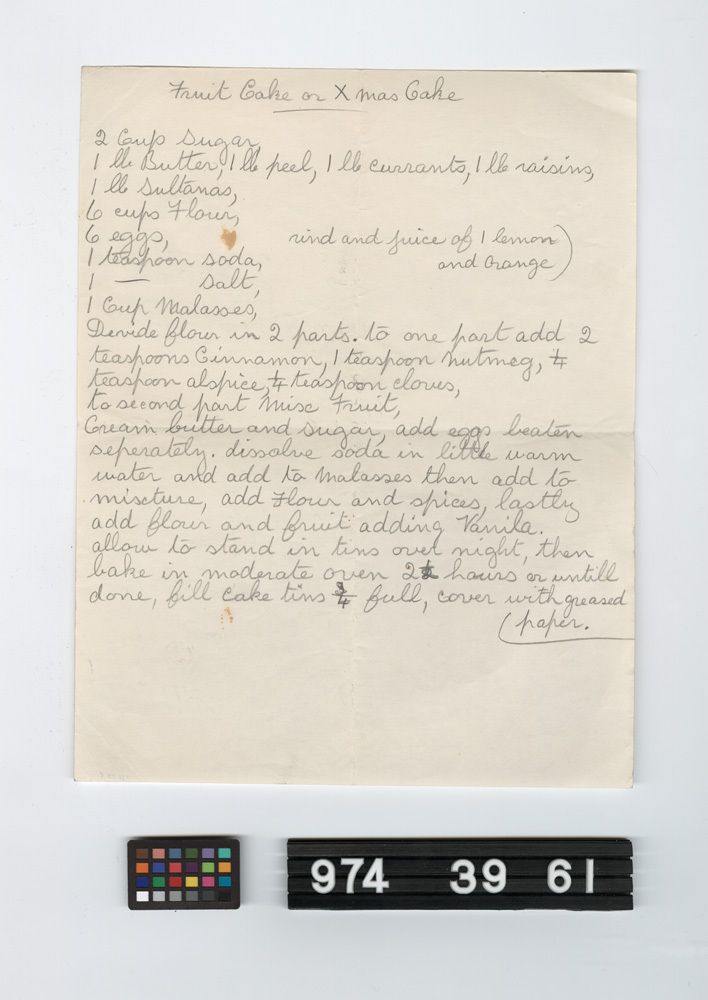 Fruit Cake or Xmas Cake
2 Cup Sugar,
1 lb Butter, 1 lb peel, 1 lb currants, 1 lb raisins,
1 lb Sultanas,
6 cups Flour,
6 eggs, rind and juice of 1 lemon
1 teaspoon soda, and orange)
1 — Salt,
1 Cup Malasses,
Devide flour in 2 parts. to one part add 2
teaspoons Cinnamon, 1 teaspoon nutmeg, ¼
teaspoon alspice, ¼ teaspoon cloves,
to second part Misc Fruit,
Cream butter and sugar, add eggs beaten
seperately. dissolve soda in little warm
water and add to Malasses then add to
miscture, add Flour and spices, lastly
add flour and fruit adding Vanila.
allow to stand in tins over night, then
bake in moderate oven 2½ hours or untill
done, fill cake tins ¾ full, cover with greased
(paper.
974 39 61